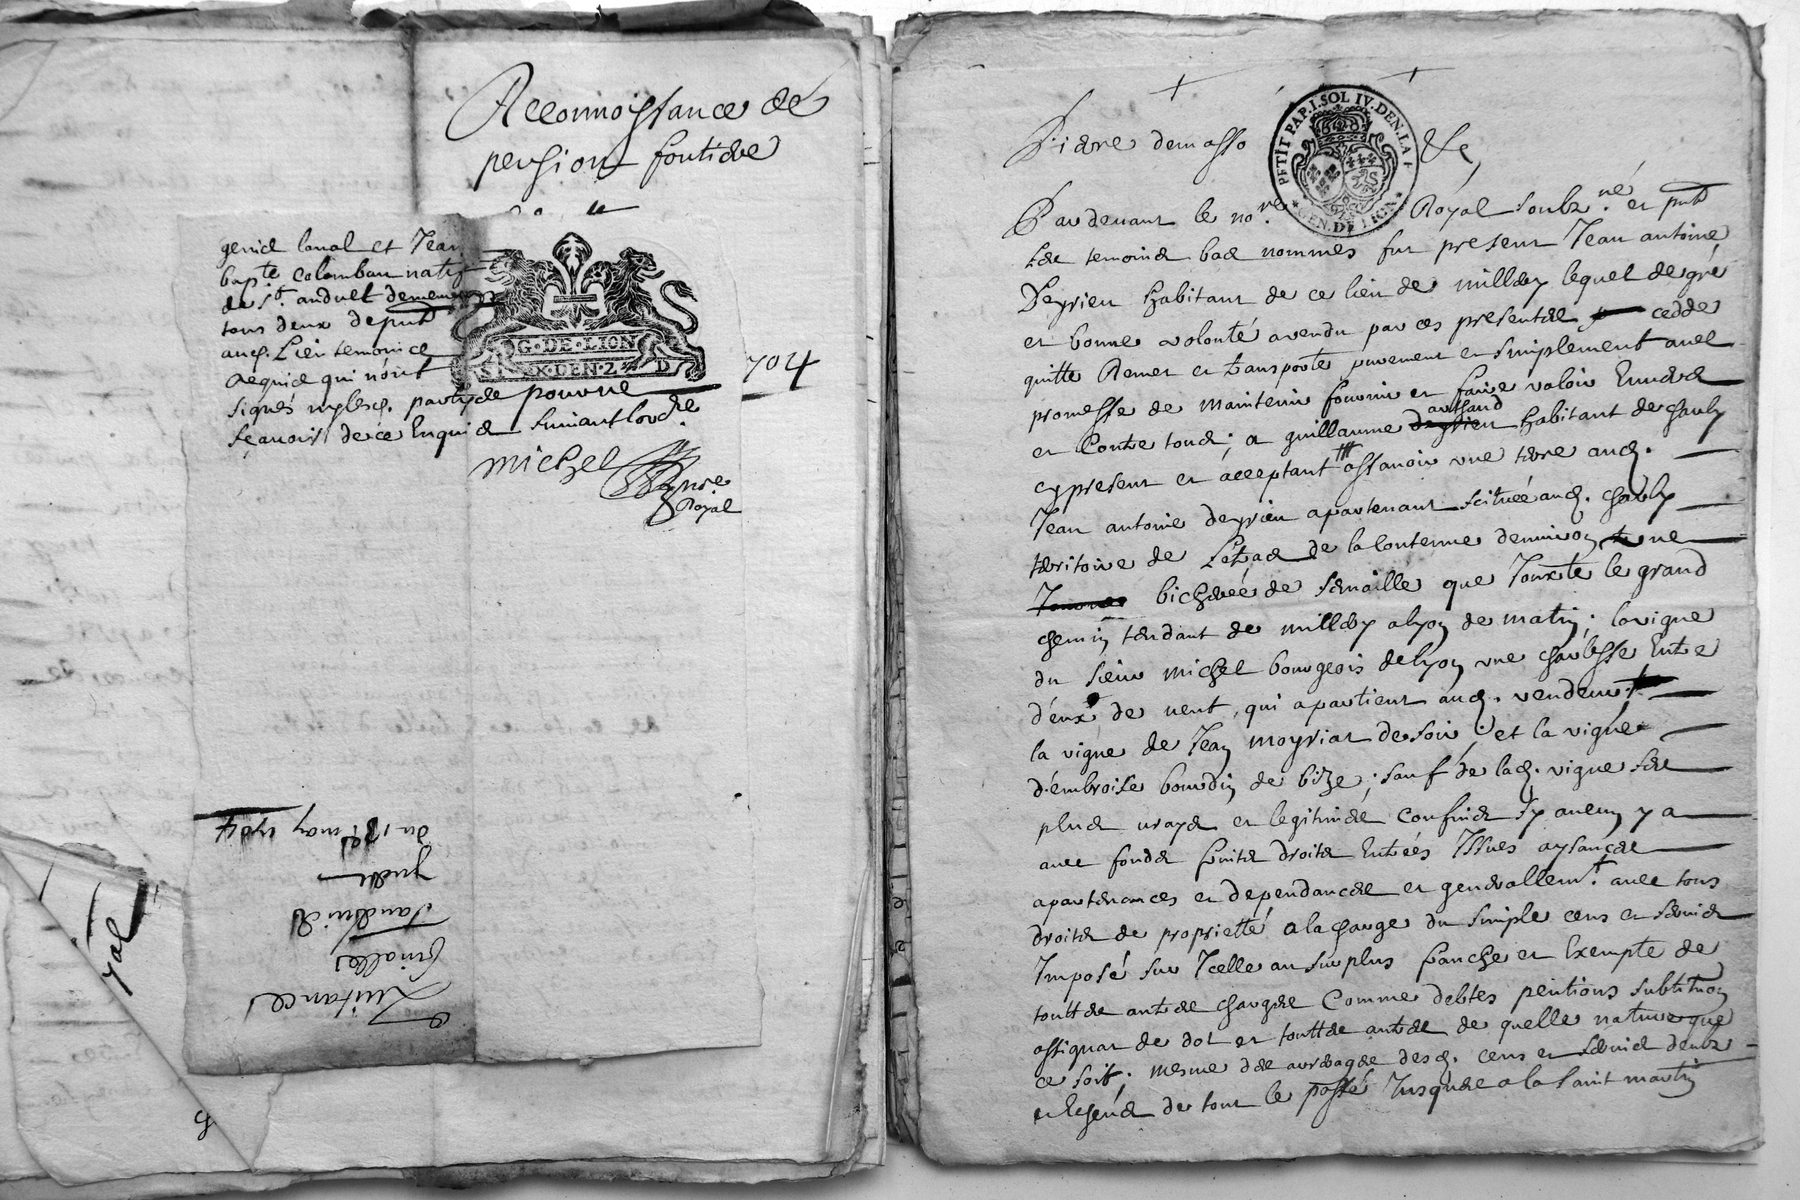 Reconnoissance de
pension fontiere
genie laval et Jean
bapte. colomban natif
de st. andult demeurant
tous deux
aud. Lieu temoins
Requis qui n'ont
signés partyes pour ne
scavoir de ce Enquis suivant lordre
michel
Royal
G·DE·LION
X·DEN·2
D
704
du 13e. may 1704
Quitance
finalle
val
Pierre demasso &c,
PETIT PAP. I. SOL IV. DEN. LA F.
GEN. DE LION
Par devant le nore. Royal soubzné. et pnts
les temoins bas nommés fut present Jean antoine
Deyrieu habitant de ce lieu de millery lequel de gré
et bonne volonté a vendu par ces presentes cedde
quitte Remet et transporte purement et simplement avec
promesse de maintenir fournir et faire valoir Envers
et Contre tous; a guillaume habitant de charly
cy present et acceptant assavoir une terre aud.
Jean antoine deyrieu apartenant scituée aud. charly
territoire de de la Contenue denviron une
bicherée de semaille que Jouxte le grand
chemin tendant de millery a lyon de matin; la vigne
du sieur michel bourgeois de lyon une Entre
deux de vent, qui apartient aud. vendeur;
la vigne de Jean moyriat de soir; et la vigne
d'embroise bourdin de bize; sauf de lad. vigne ses
plus vrays et legitimes Confins sy aucun y a
avec fonds fruits droits Entrées Issues aysances
apartenances et dependances et generallemt. avec tous
droits de proprietté, a la charge du simple cens et servis
Imposé sur Icelle au surplus franche et Exempte de
touttes autres charges Comme debtes pentions subtitution
assignat de dot et touttes autres de quelle nature que
ce soit; mesme des arrerages desd. cens et servis deubz
et Echeus de tout le passé Jusques a la saint martin